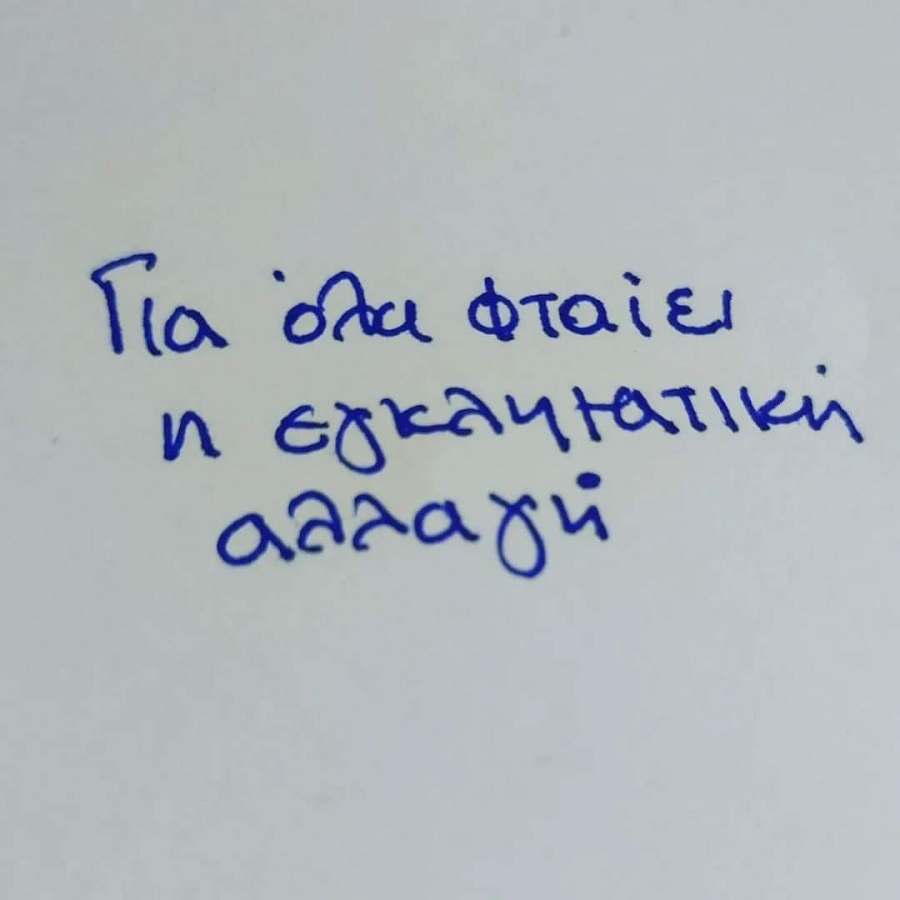 Για όλα φταίει
η εγκλητατική
αλλαγή